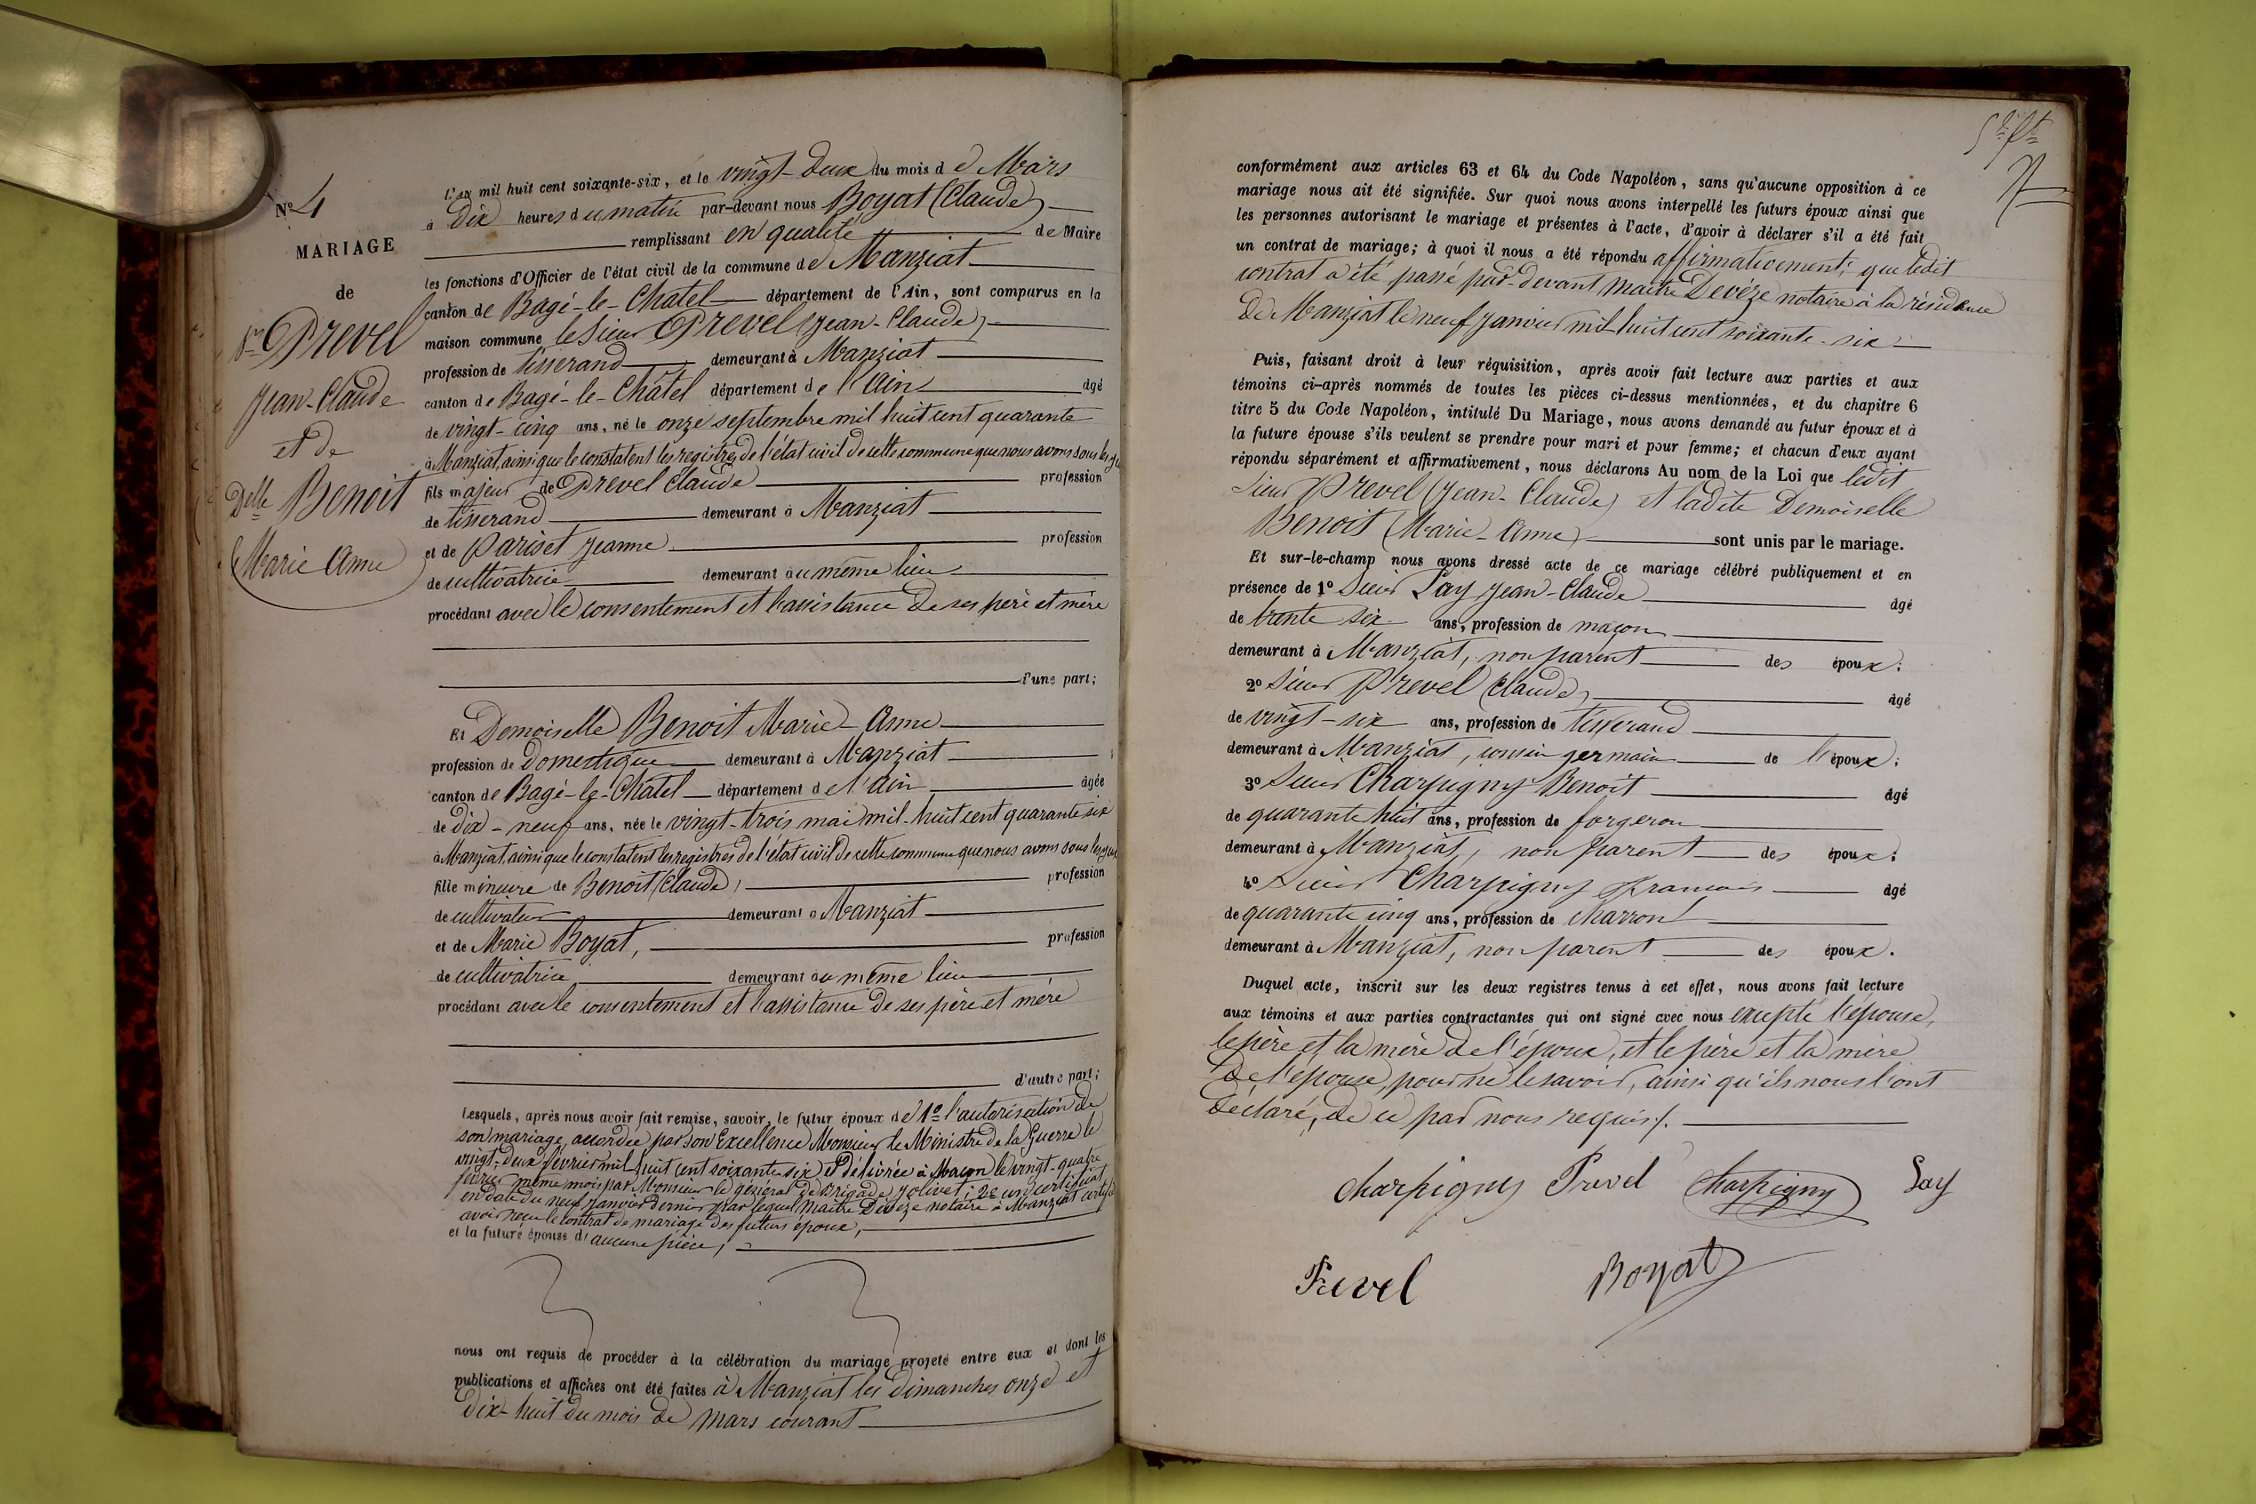 N° 4
MARIAGE
de
Sr Prevel
Jean-Claude
et de
Delle Benoit
Marie Anne
L'an mil huit cent soixante-six, et le vingt-deux du mois de Mars
à dix heures du matin par-devant nous Boyat (Claude)
remplissant en qualité de Maire
les fonctions d'Officier de l'état civil de la commune de Manziat
canton de Bagé-le-Chatel département de l'Ain, sont comparus en la
maison commune le Sieur Prevel (Jean-Claude)
profession de tisserand demeurant à Manziat
canton de Bagé-le-Châtel département de l'Ain âgé
de vingt-cinq ans, né le onze septembre mil huit cent quarante
à Manziat, ainsi que le constatent les registres de l'état civil de cette commune que nous avons sous les yeux
fils majeur de Prevel Claude profession
de tisserand demeurant à Manziat
et de Pariset Jeanne profession
de cultivatrice demeurant au même lieu
procédant avec le consentement et l'assistance de ses père et mère
d'une part;
Et Demoiselle Benoit Marie-Anne
profession de Domestique demeurant à Manziat
canton de Bagé-le-Chatel département de l'Ain âgée
de dix-neuf ans, née le vingt-trois mai mil-huit cent quarante six
à Manziat, ainsi que le constatent les registres de l'état civil de cette commune que nous avons sous les yeux
fille mineure de Benoit (Claude), profession
de cultivateur demeurant à Manziat
et de Marie Boyat, profession
de cultivatrice demeurant au même lieu
procédant avec le consentement et l'assistance de ses père et mère
d'autre part;
Lesquels, après nous avoir fait remise, savoir, le futur époux de 1° l'autorisation de
son mariage accordée par son Excellence Monsieur le Ministre de la Guerre le
vingt-deux février mil huit cent soixante six et délivrée à Macon le vingt-quatre
février même mois par Monsieur le général de Brigade Jolivet; 2° un certificat
en date du neuf janvier dernier par lequel Maître Devèze notaire à Manziat certifie
avoir reçu le contrat de mariage des futurs époux,
et la future épouse d'aucune pièce;
nous ont requis de procéder à la célébration du mariage projeté entre eux et dont les
publications et affiches ont été faites à Manziat les dimanches onze et
dix-huit du mois de mars courant
7
conformément aux articles 63 et 64 du Code Napoléon, sans qu'aucune opposition à ce
mariage nous ait été signifiée. Sur quoi nous avons interpellé les futurs époux ainsi que
les personnes autorisant le mariage et présentes à l'acte, d'avoir à déclarer s'il a été fait
un contrat de mariage; à quoi il nous a été répondu affirmativement; que ledit
contrat a été passé par-devant maître Devèze notaire à la résidence
de Manziat le neuf janvier mil huit cent soixante-six
Puis, faisant droit à leur réquisition, après avoir fait lecture aux parties et aux
témoins ci-après nommés de toutes les pièces ci-dessus mentionnées, et du chapitre 6
titre 5 du Code Napoléon, intitulé Du Mariage, nous avons demandé au futur époux et à
la future épouse s'ils veulent se prendre pour mari et pour femme; et chacun d'eux ayant
répondu séparément et affirmativement, nous déclarons Au nom de la Loi que ledit
Sieur Prevel (Jean-Claude) et ladite Demoiselle
Benoit (Marie-Anne) sont unis par le mariage.
Et sur-le-champ nous avons dressé acte de ce mariage célébré publiquement et en
présence de 1° Sieur Lay Jean-Claude âgé
de trente six ans, profession de maçon
demeurant à Manziat, non parent des époux;
2° Sieur Prevel (Claude) âgé
de vingt-six ans, profession de tisserand
demeurant à Manziat, cousin germain de l'époux;
3° Sieur Charpigny Benoit âgé
de quarante huit ans, profession de forgeron
demeurant à Manziat, non parent des époux;
4° Sieur Charpigny François âgé
de quarante cinq ans, profession de charron
demeurant à Manziat, non parent des époux.
Duquel acte, inscrit sur les deux registres tenus à cet effet, nous avons fait lecture
aux témoins et aux parties contractantes qui ont signé avec nous excepté l'épouse,
le père et la mère de l'époux, et le père et la mère
de l'épouse, pour ne le savoir, ainsi qu'ils nous l'ont
déclaré, de ce par nous requis.
Charpigny Prevel Charpigny Lay
Prevel Boyat